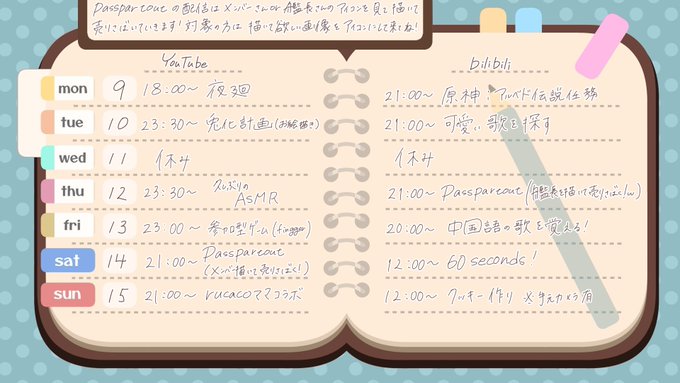 Passpartoutの配信はメンバーさんor艦長さんのアイコンを見て描いて
売りさばいていきます!対象の方は描いて欲しい画像をアイコンにして来てね!
YouTube
bilibili
mon 9 18:00〜 夜廻
21:00〜 原神:アルベド伝説任務
tue 10 23:30〜 兎化計画(お絵描き)
21:00〜 可愛い歌を探す
wed 11 休み
休み
thu 12 23:30〜 久しぶりの
ASMR
21:00〜 Passpartout(艦長を描いて売りさばく!)
fri 13 23:00〜 参加型ゲーム
20:00〜 中国語の歌を覚える!
sat 14 21:00〜 Passpartout
(メンバー描いて売りさばく!)
12:00〜 60 seconds!
sun 15 21:00〜 rucacoママコラボ
12:00〜 クッキー作り ※手元カメラ有